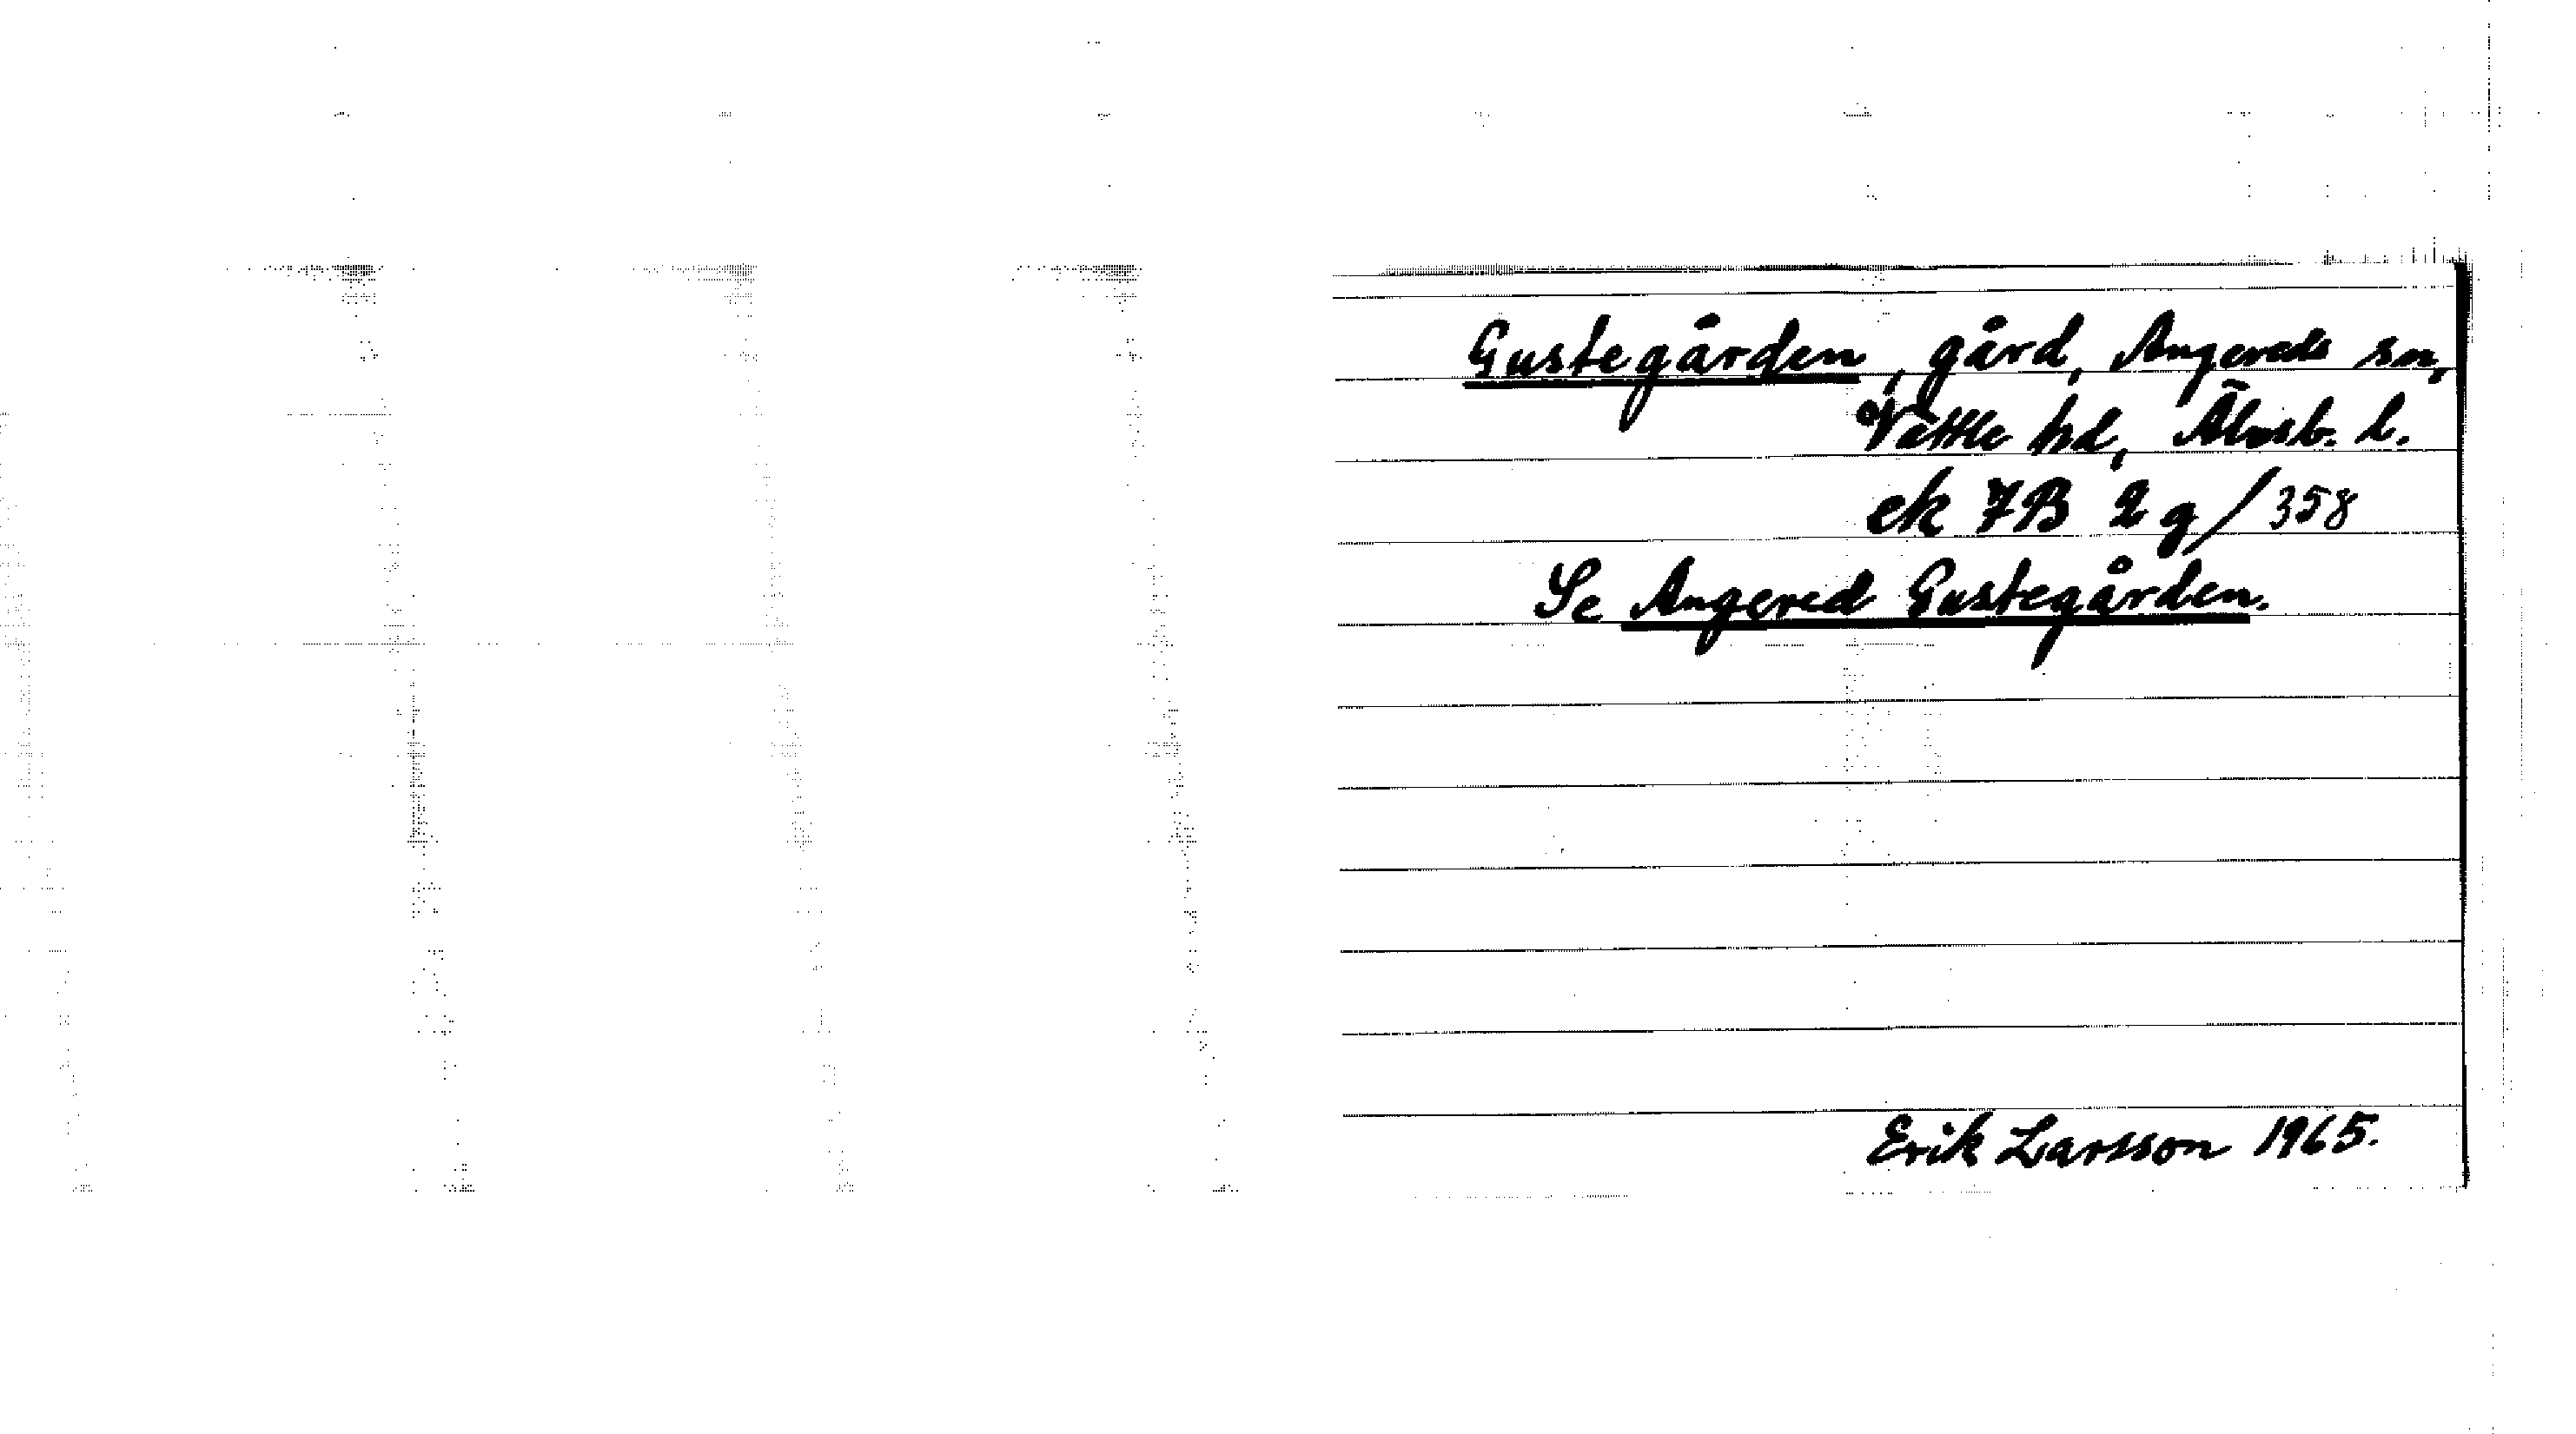 Gustegården, gård, Angereds sn,
Vättle hd, Älvsb. l.
ek 7B 2g/358
Se Angered Gustegården.
Erik Larsson 1965.